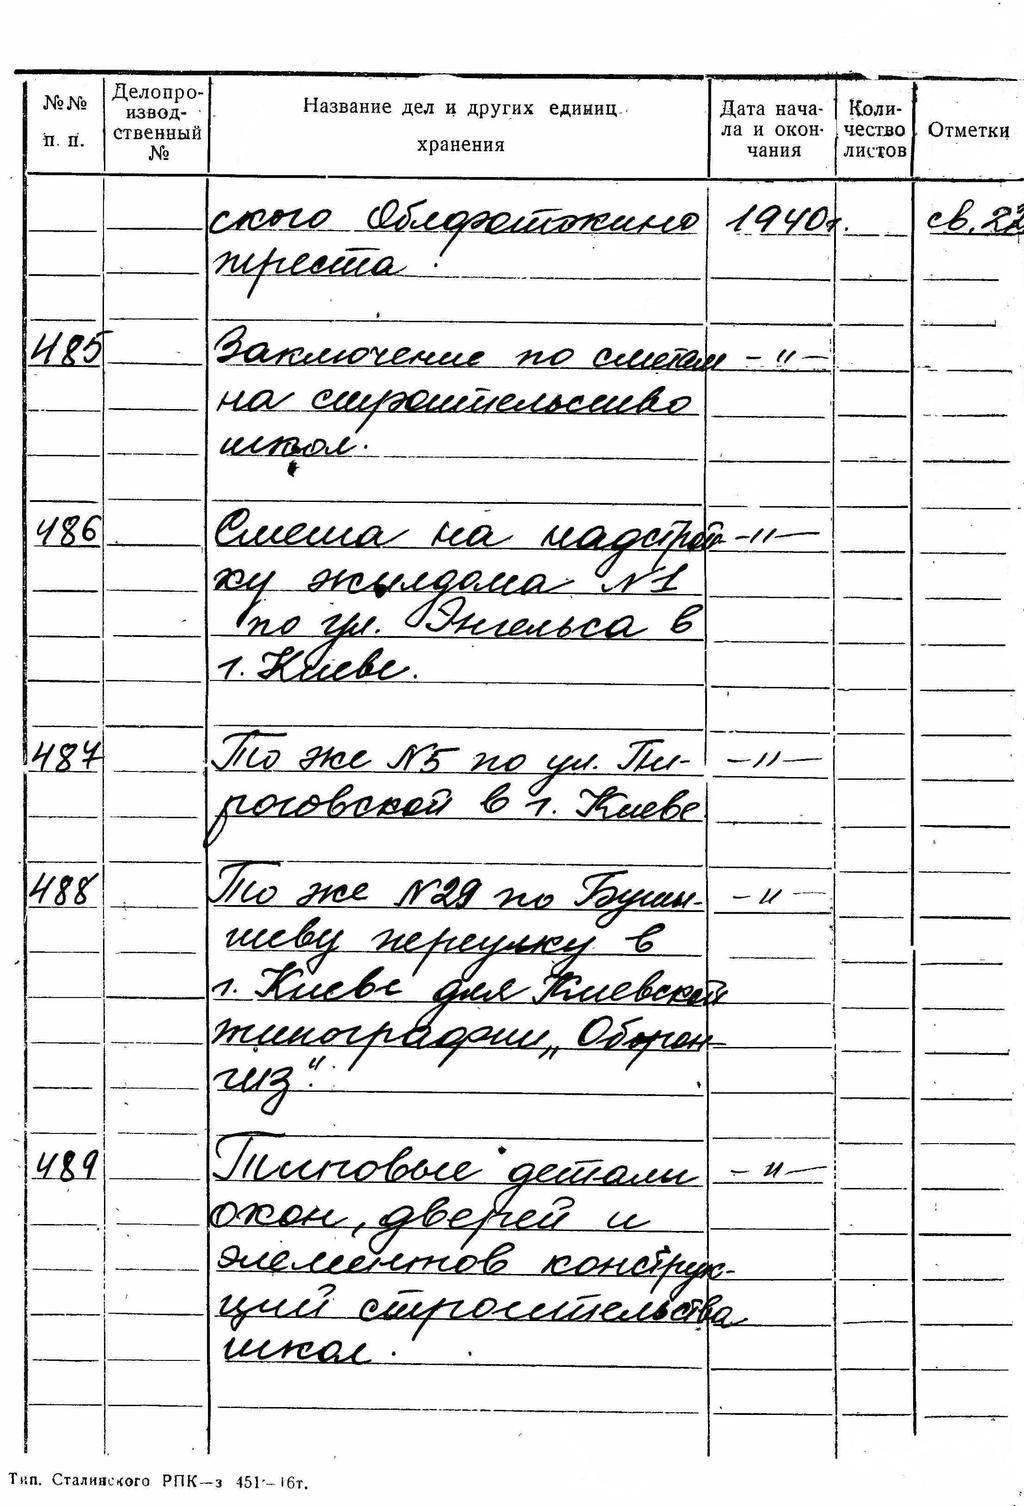 №№ п. п.
Делопроизводственный №
Название дел и других единиц хранения
Дата начала и окончания
Количество листов
Отметки
ского Облфотокино 1940г. св. 22
треста
485 Заключение по сметам -"-
на строительство
школ.
486 Смета на надстрой- -"-
ку жилдома №1
по ул. Энгельса в
г. Киеве.
487 То же №5 по ул. Пи- -"-
роговской в г. Киеве
488 То же №29 по -"-
переулку в
г. Киеве для Киевской
типографии „Оборон-
гиз".
489 Типовые детали -"-
окон, дверей и
элементов конструк-
ций строительства
школ.
Тип. Сталинского РПК—з 451—16т.